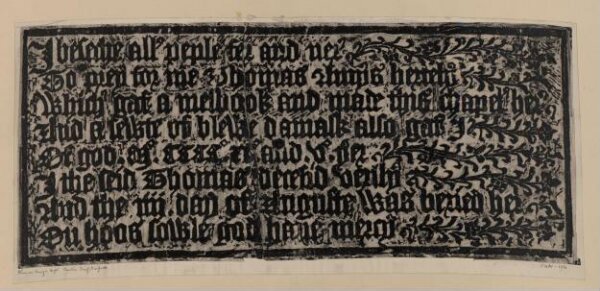 I beseche all peple fer and ner
To prey for me Thomas Amys hertely
Which gaf a mesbook and made this chapel her
And a sewte of blew damask also gaf I
Of god cccc and v yer
I the seid Thomas decesid verily
And the day of Auguste was beried her
On hoos sowle god have mercy